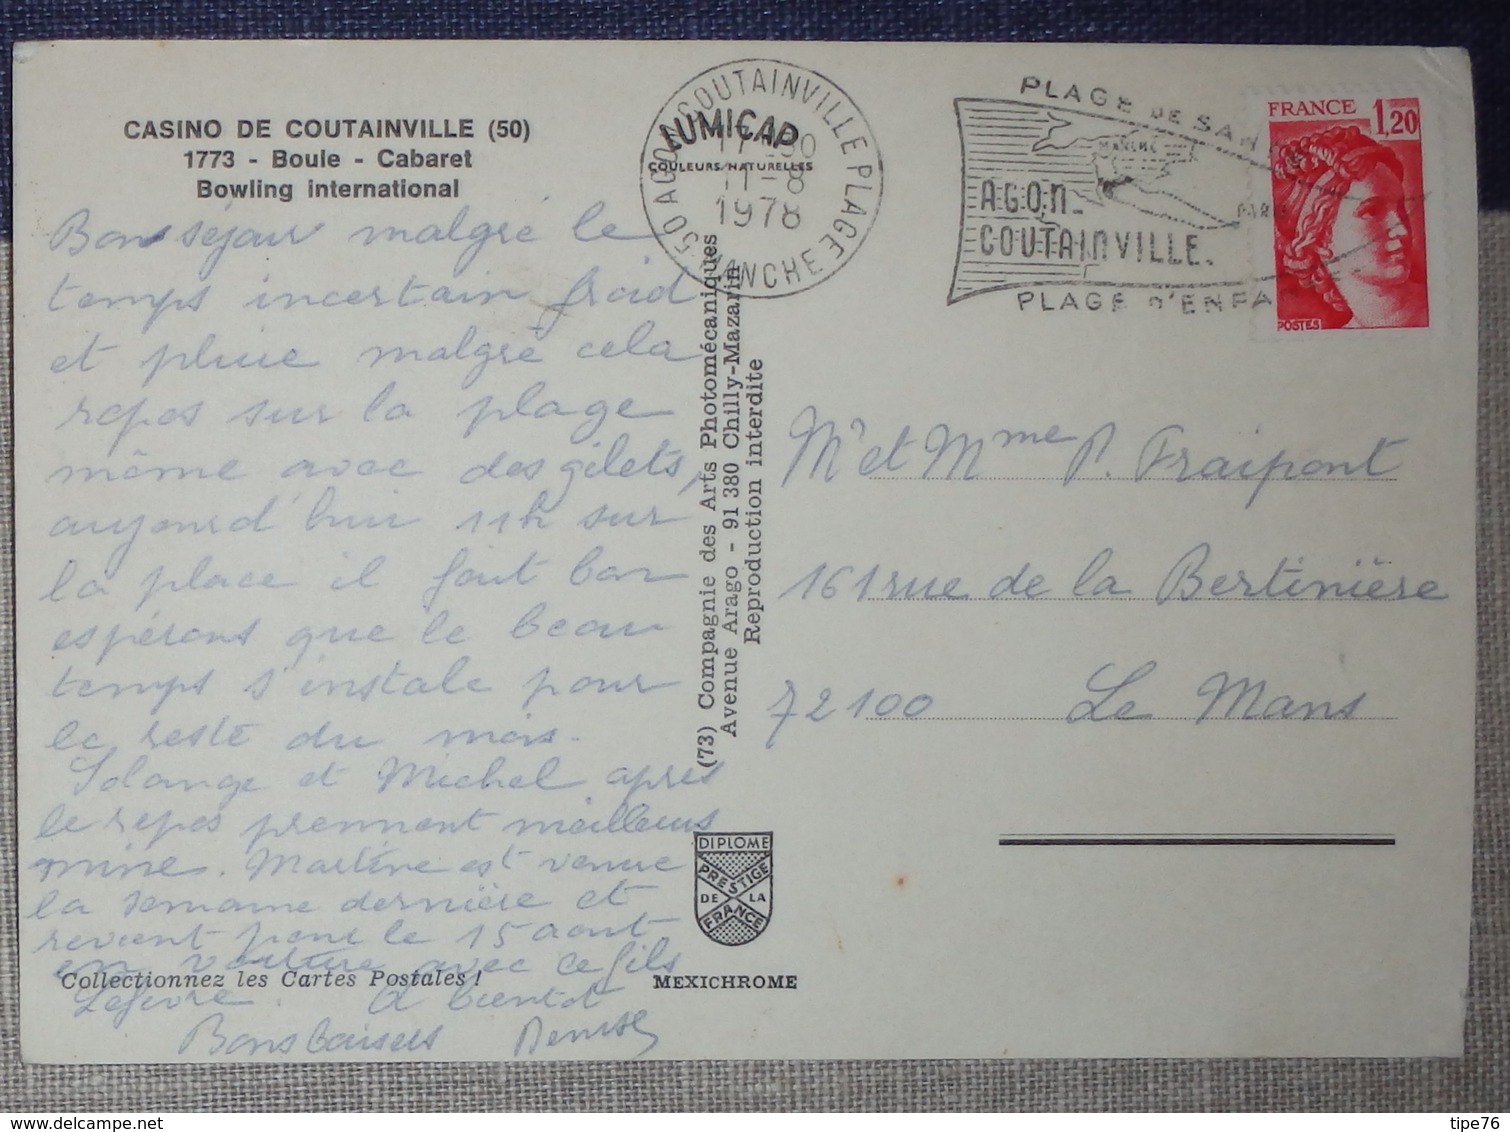 CASINO DE COUTAINVILLE (50)
1773 - Boule - Cabaret
Bowling international
Bon séjour malgré le
temps incertain froid
et pluie malgré cela
repos sur la plage
même avec des gilets,
aujourd'hui 11h sur
la place il fait bon
espérons que le beau
temps s'instale pour
le reste du mois.
Solange et Michel après
le repos prennent meilleurs
mine. Martine est venue
la semaine dernière et
revient pour le 15 aout
en voiture avec ce fils
Lefevre. A bientot
Bons baisers Denise
Collectionnez les Cartes Postales !
50 AGON COUTAINVILLE PLAGE
MANCHE
11-8
1978
LUMICAP
COULEURS NATURELLES
(73) Compagnie des Arts Photomécaniques
Avenue Arago - 91 380 Chilly-Mazarin
Reproduction interdite
DIPLOME
PRESTIGE
DE LA
FRANCE
MEXICHROME
PLAGE DE SAN
MANCHE
PARIS
AGON-
COUTAINVILLE.
PLAGE D'ENFA
FRANCE
1,20
POSTES
Mr et Mme P. Fraipont
161 rue de la Bertinière
72100 Le Mans
delcampe.net
tipe76